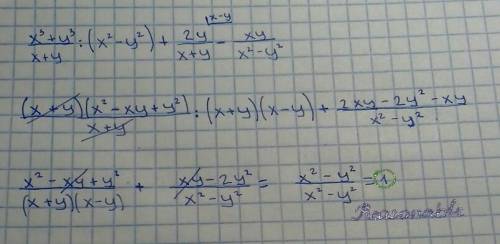 x-y
(x³+y³)/(x+y) : (x²-y²) + 2y/(x+y) - xy/(x²-y²)
(x+y)(x²-xy+y²)/(x+y) : (x+y)(x-y) + (2xy-2y²-xy)/(x²-y²)
(x²-xy+y²)/((x+y)(x-y)) + (xy-2y²)/(x²-y²) = (x²-y²)/(x²-y²) = 1